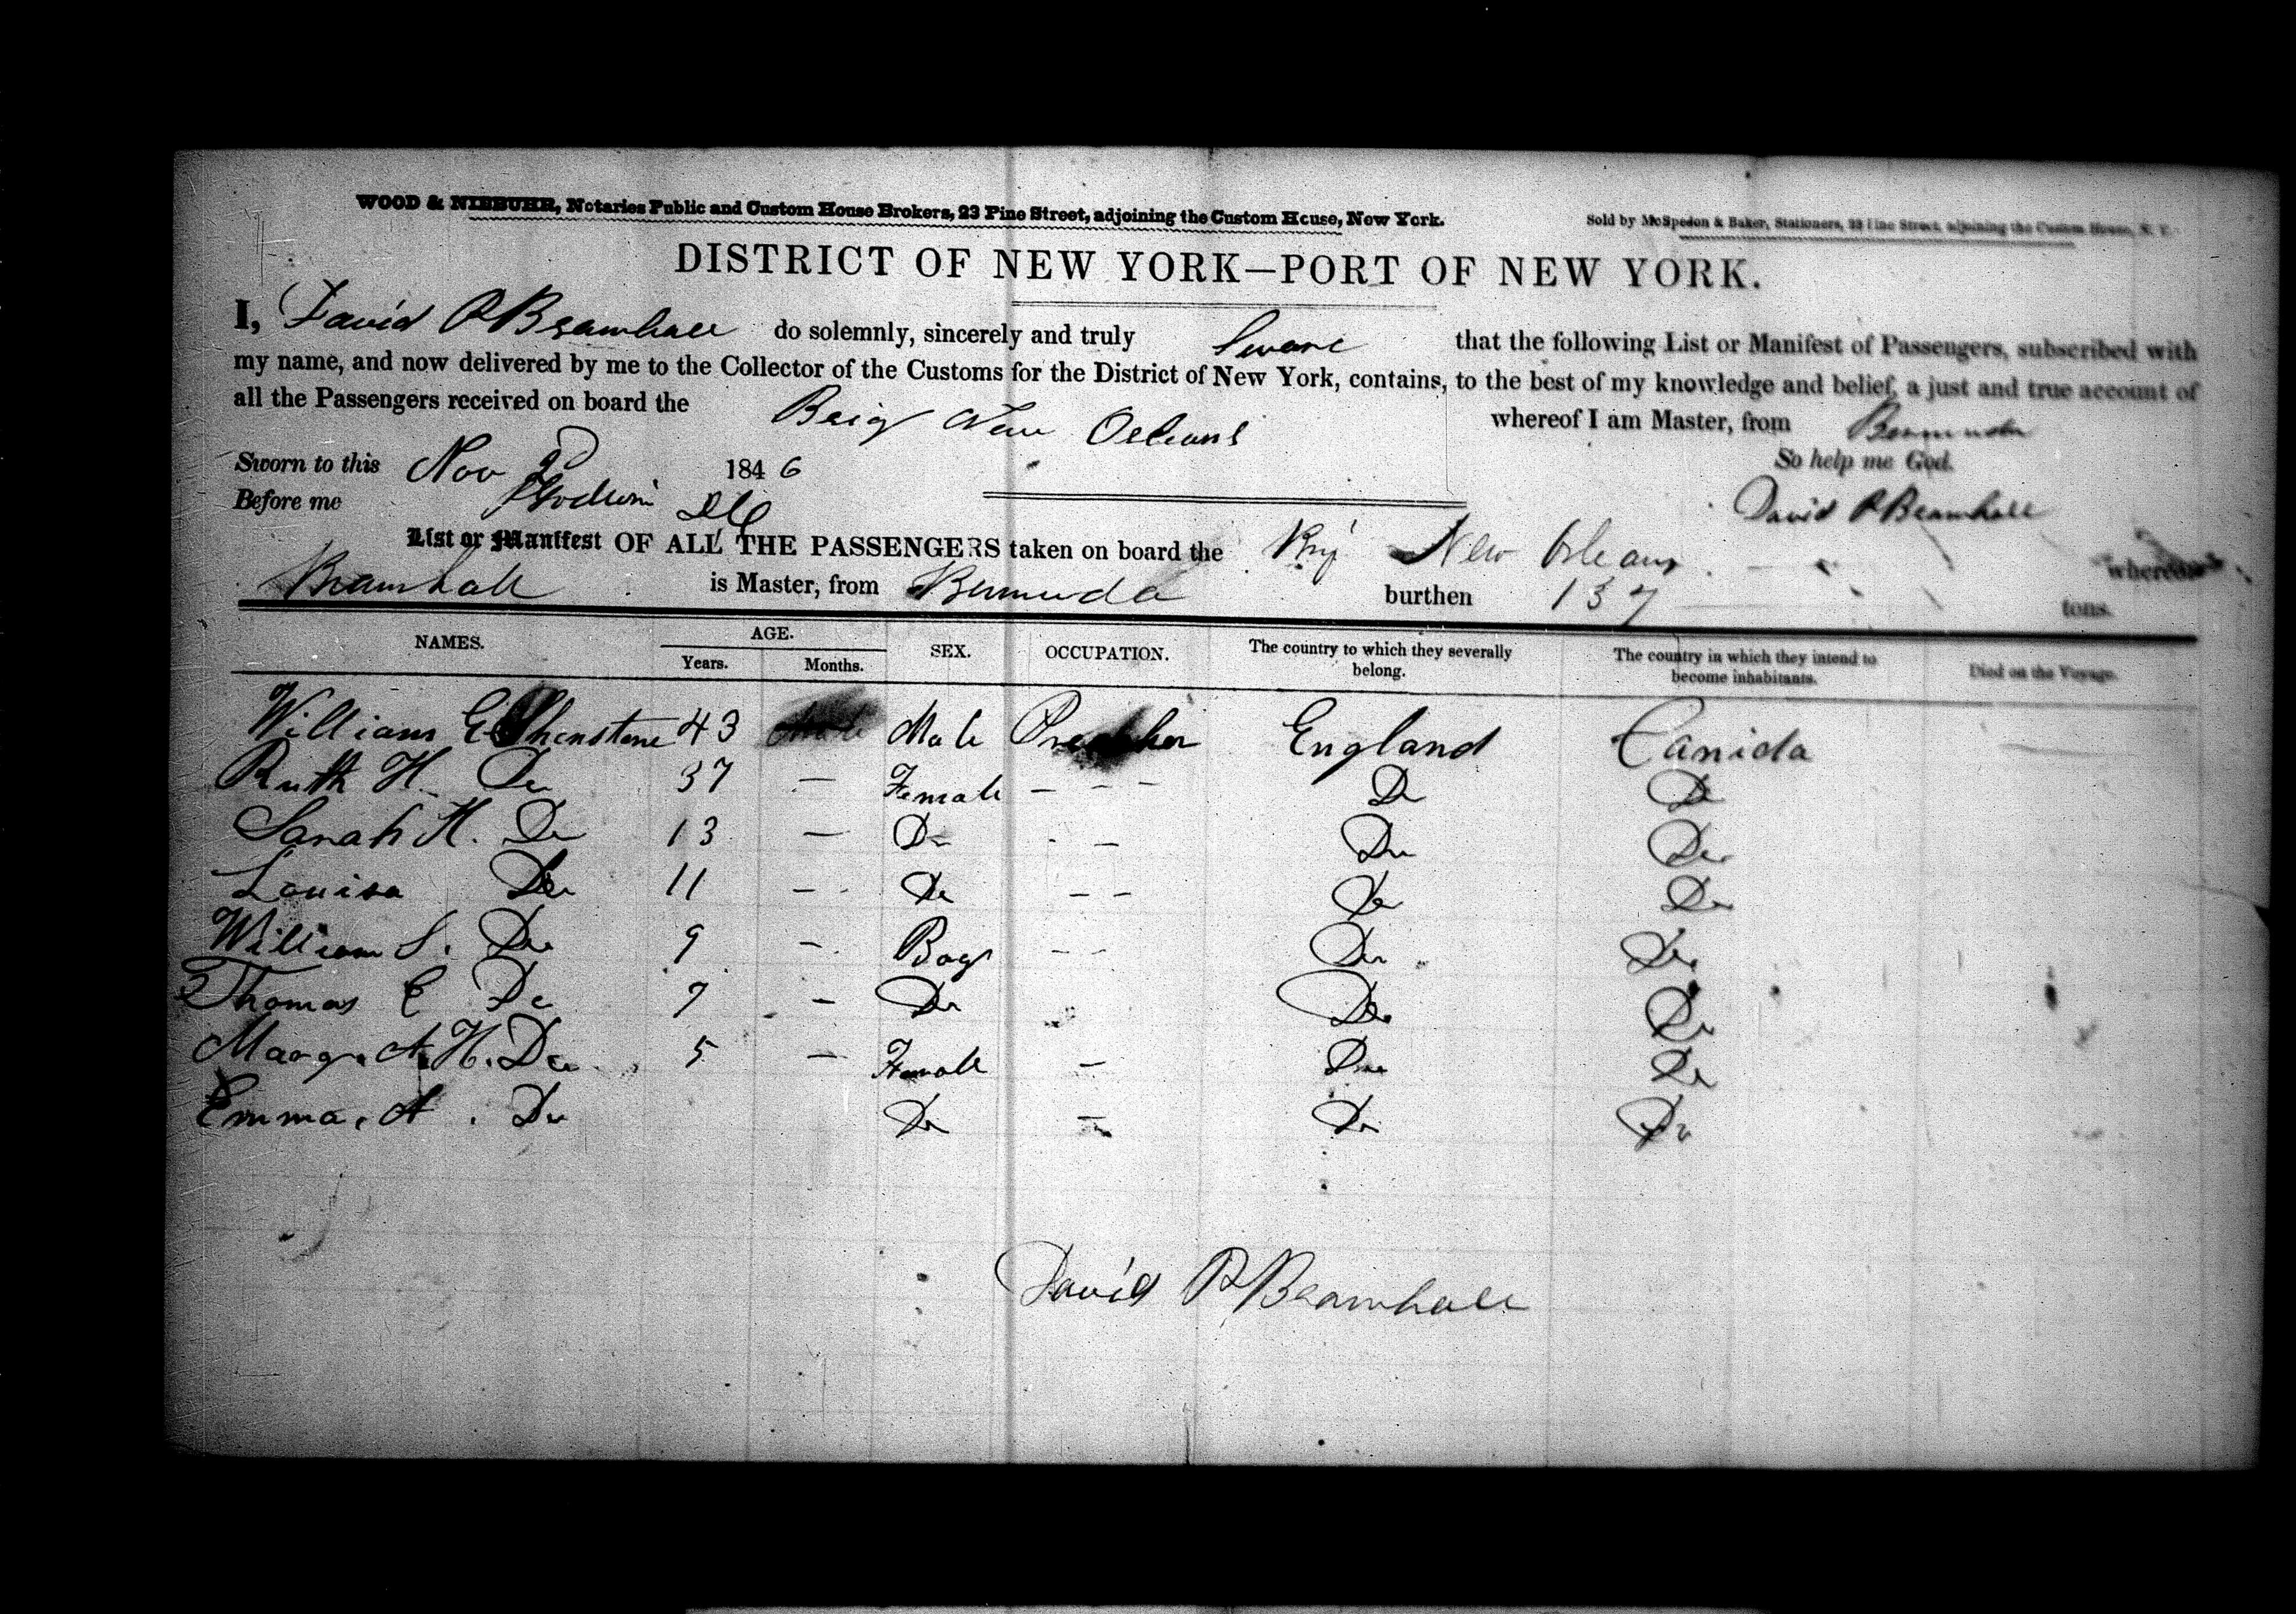 WOOD & NIEBUHR, Notaries Public and Custom House Brokers, 23 Pine Street, adjoining the Custom House, New York.
Sold by McSpedon & Baker, Stationers, 23 Pine Street, adjoining the Custom House, N. Y.
DISTRICT OF NEW YORK—PORT OF NEW YORK.
I, David P Bramhall do solemnly, sincerely and truly Swear that the following List or Manifest of Passengers, subscribed with
my name, and now delivered by me to the Collector of the Customs for the District of New York, contains, to the best of my knowledge and belief, a just and true account of
all the Passengers received on board the Brig New Orleans whereof I am Master, from Bermuda
Sworn to this Nov 1846 So help me God.
Before me David P Bramhall
List or Manifest OF ALL THE PASSENGERS taken on board the Brig New Orleans whereof
Bramhall is Master, from Bermuda burthen 137 tons.
NAMES. AGE. SEX. OCCUPATION. The country to which they severally belong. The country in which they intend to become inhabitants. Died on the Voyage.
Years. Months.
William E Shenstone 43 Male Preacher England Canida
Ruth H. Do 37 — Female - - - Do Do
Sarah H. Do 13 — Do - — Do Do
Louisa Do 11 — Do - - Do Do
William S. Do 9 — Boy - - Do Do
Thomas E Do 7 — Do Do Do
Marg. A. H. Do 5 — Female — Do Do
Emma. A. Do Do — Do Do
David P Bramhall